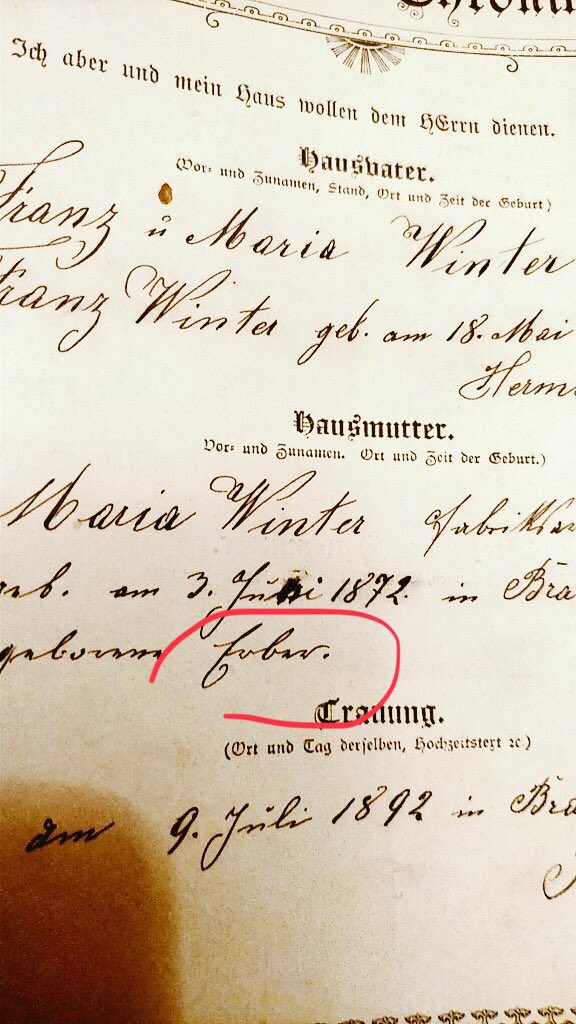 Ich aber und mein Haus wollen dem HErrn dienen.
Hausvater.
(Vor- und Zunamen, Stand, Ort und Zeit der Geburt)
Franz u Maria Winter
Franz Winter geb. am 18. Mai
Herm
Hausmutter.
Vor- und Zunamen. Ort und Zeit der Geburt.)
Maria Winter Fabriks
geb. am 3. Juni 1872 in Bra
geborene Erber.
Trauung.
(Ort und Tag derselben, Hochzeitstext ꝛc.)
am 9. Juli 1892 in Bra